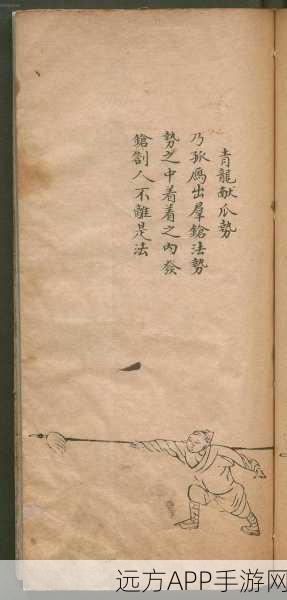 青龍献爪勢
乃孤鴈出羣鎗法勢
勢之中着着之內發
鎗劄人不離是法
远方APP手游网